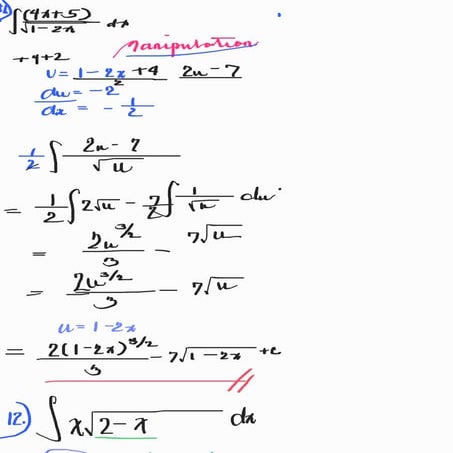 ∫ (4x+5)/√1-2x dx
Manipulation
+4+2
u = 1-2x +4 2u-7
2
du/dx = -2 = -1/2
1/2 ∫ 2u-7/√u
= 1/2 ∫ 2√u - 7/2 ∫ 1/√u du
= 2u^3/2/3 - 7√u
= 2u^3/2/3 - 7√u
u = 1-2x
= 2(1-2x)^3/2/3 - 7√1-2x +c
12.) ∫ x√2-x dx